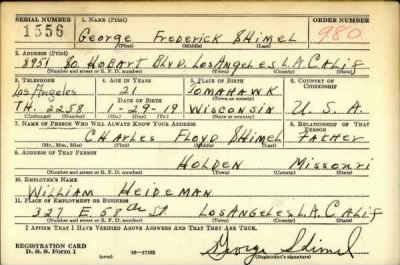 SERIAL NUMBER 1. NAME (Print) ORDER NUMBER
1556 George Frederick SHimel 980
(First) (Middle) (Last)
2. ADDRESS (Print)
8951 SO. HOBART BLVD. LOS ANGELES L.A. CALIF
(Number and street or R. F. D. number) (Town) (County) (State)
3. TELEPHONE 4. AGE IN YEARS 5. PLACE OF BIRTH 6. COUNTRY OF CITIZENSHIP
Los Angeles 21 TOMAHAWK
DATE OF BIRTH (Town or county)
TH. 2258 1-29-19 WISCONSIN U.S.A.
(Exchange) (Number) (Mo.) (Day) (Yr.) (State or country)
7. NAME OF PERSON WHO WILL ALWAYS KNOW YOUR ADDRESS 8. RELATIONSHIP OF THAT PERSON
CHARLES FLOYD SHIMEL FATHER
(Mr., Mrs., Miss) (First) (Middle) (Last)
9. ADDRESS OF THAT PERSON
HOLDEN Missouri
(Number and street or R. F. D. number) (Town) (County) (State)
10. EMPLOYER'S NAME
WILLIAM HEIDEMAN
11. PLACE OF EMPLOYMENT OR BUSINESS
327 E. 58th St. LOS ANGELES L.A. CALIF
(Number and street or R. F. D. number) (Town) (County) (State)
I AFFIRM THAT I HAVE VERIFIED ABOVE ANSWERS AND THAT THEY ARE TRUE.
REGISTRATION CARD
D. S. S. Form 1 16-17105 George Shimel
(Registrant's signature)